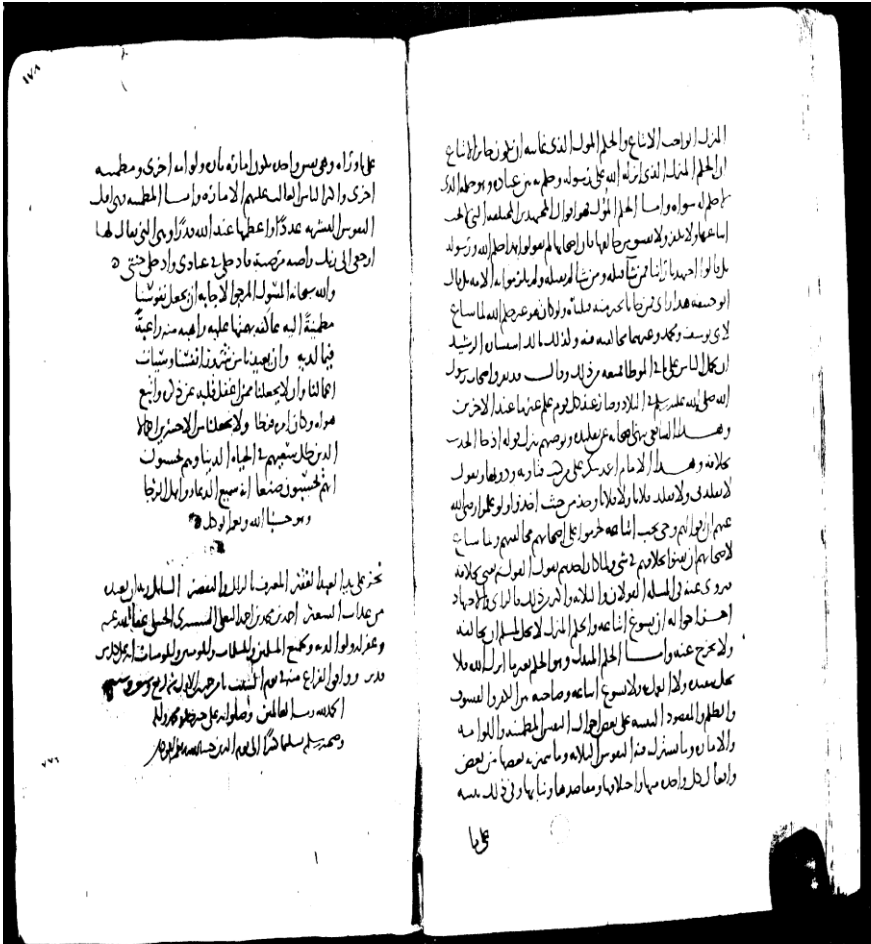 المنزل الواجب الاتباع والحكم المؤول الذي غايته ان يكون جائز الاتباع
ان الحكم المنزل الذي انزله الله على رسوله وحكم به بين عباده وهو حكمه الذي
لا حكم له سواه واما الحكم المؤول فهو اقوال المجتهدين المختلفة التي لا يجب
اتباعها ولا يكفر ولا يفسق من خالفها فان اصحابها لم يقولوا هذا حكم الله ورسوله
بل قالوا اجتهدنا براينا فمن شا قبله ومن شا لم يقبله ولم يلزموا به الامة بل قال
ابو حنيفة هذا رايي فمن جانا بخير منه قبلناه ولو كان هو عين حكم الله لما ساغ
لابي يوسف ومحمد وغيرهما مخالفته فيه وكذلك مالك استشاره الرشيد
ان يحمل الناس على ما في الموطا فمنعه من ذلك وقال قد تفرق اصحاب رسول
الله صلى الله عليه وسلم في البلاد وصار عند كل قوم علم غير ما عند الاخرين
وهذا الشافعي ينهى اصحابه عن تقليده ويوصيهم بترك قوله اذا جا الحديث
بخلافه وهذا الامام احمد ينكر على من كتب فتاويه ودونها ويقول
لا تقلدني ولا تقلد فلانا ولا فلانا وخذ من حيث اخذوا ولو علموا رضي الله
عنهم ان اقوالهم وحي يجب اتباعه لحرموا على اصحابهم مخالفتهم ولما ساغ
لاصحابهم ان يفتوا بخلافهم في شي ولما كان احدهم يقول القول ثم يفتي بخلافه
فيروى عنه في المسلة القولان والثلاثة واكثر من ذلك فالراي والاجتهاد
احسن احواله ان يسوغ اتباعه والحكم المنزل لا يحل لمسلم ان يخالفه
ولا يخرج عنه واما الحكم المبدل وهو الحكم بغير ما انزل الله فلا
يحل تنفيذه ولا العمل به ولا يسوغ اتباعه وصاحبه بين الكفر والفسوق
والظلم والمقصود التنبيه على بعض احوال النفس المطمئنة واللوامة
والامارة وما تشترك فيه النفوس الثلاثة وما يتميز به بعضها من بعض
وافعال كل واحدة منها واختلافها ومقاصدها ونياتها وفي ذلك تنبيه
على ما
١٧٨
على ما وراه وهي نفس واحدة تكون امارة تارة ولوامة اخرى ومطمئنة
اخرى واكثر الناس الغالب عليهم الامارة واما المطمئنة فهي اقل
النفوس البشرية عددا واعظمها عند الله قدرا وهي التي يقال لها
ارجعي الى ربك راضية مرضية فادخلي في عبادي وادخلي جنتي
والله سبحانه المسئول المرجو الاجابة ان يجعل نفوسنا
مطمئنة اليه عاكفة بهمتها عليه راهبة منه راغبة
فيما لديه وان يعيذنا من شرور انفسنا وسيئات
اعمالنا وان لا يجعلنا ممن اغفل قلبه عن ذكره واتبع
هواه وكان امره فرطا ولا يجعلنا من الاخسرين اعمالا
الذين ضل سعيهم في الحياة الدنيا وهم يحسبون
انهم يحسنون صنعا انه سميع الدعا واهل الرجا
وهو حسبنا الله ونعم الوكيل
نجز على يد العبد الفقير المعترف بالزلل والتقصير السايل ربه ان يعيذه
من عذاب السعير احمد بن محمد بن احمد الحنبلي عفا الله عنه
وغفر له ولوالديه ولجميع المسلمين والمسلمات والمومنين والمومنات
ووافق الفراغ منه في يوم السبت
الحمد لله رب العالمين وصلواته على خير خلقه محمد واله
وصحبه وسلم تسليما كثيرا الى يوم الدين حسبنا الله ونعم الوكيل